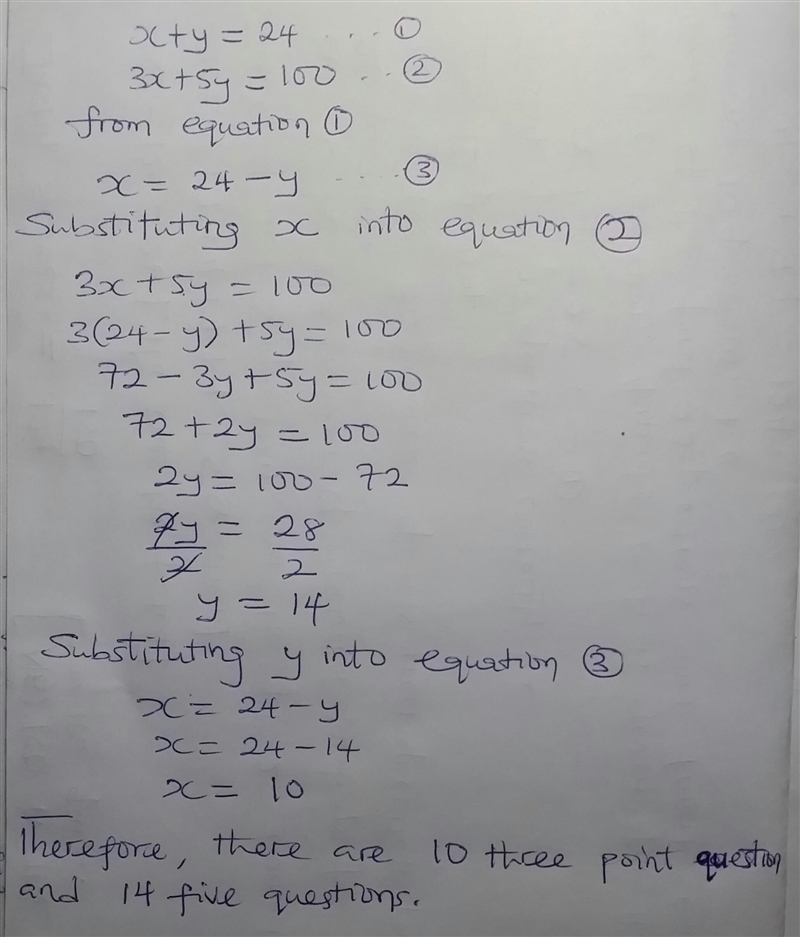 x+y = 24 ... ①
3x+5y = 100 .. ②
from equation ①
x = 24 - y .... ③
Substituting x into equation ②
3x + 5y = 100
3(24 - y) + 5y = 100
72 - 3y + 5y = 100
72 + 2y = 100
2y = 100 - 72
2y/2 = 28/2
y = 14
Substituting y into equation ③
x = 24 - y
x = 24 - 14
x = 10
Therefore, there are 10 three point question
and 14 five questions.